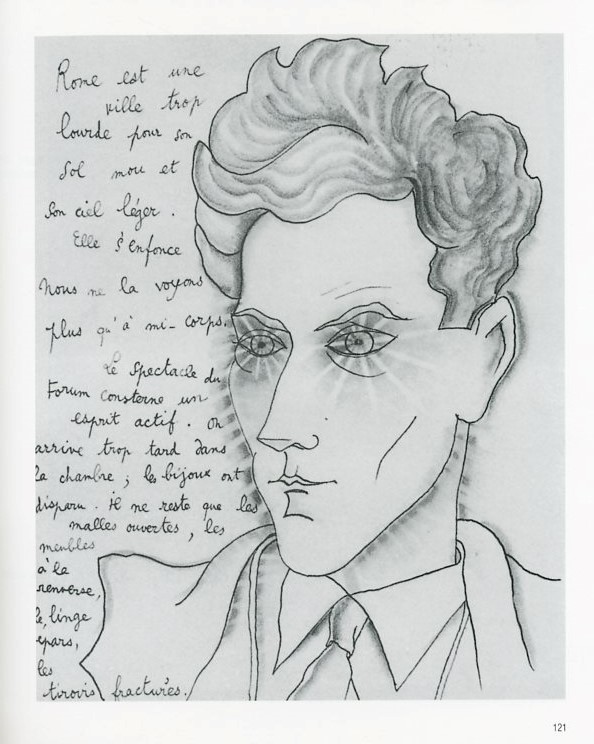 Rome est une
ville trop
lourde pour son
sol mou et
son ciel léger.
Elle s'enfonce
nous ne la voyons
plus qu'à mi-corps.
Le spectacle du
Forum consterne un
esprit actif. On
arrive trop tard dans
la chambre ; les bijoux ont
disparu. Il ne reste que les
malles ouvertes, les
meubles
à la
renverse,
le linge
epars,
les
tiroirs fracturés.
121